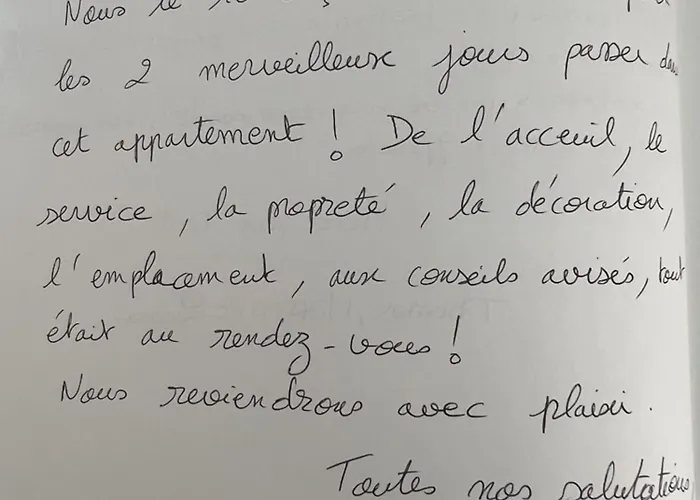 Nous
les 2 merveilleux jours passer dans
cet appartement ! De l'acceuil, le
service, la propreté, la décoration,
l'emplacement, aux conseils avisés, tout
était au rendez-vous !
Nous reviendrons avec plaisir.
Toutes nos salutations